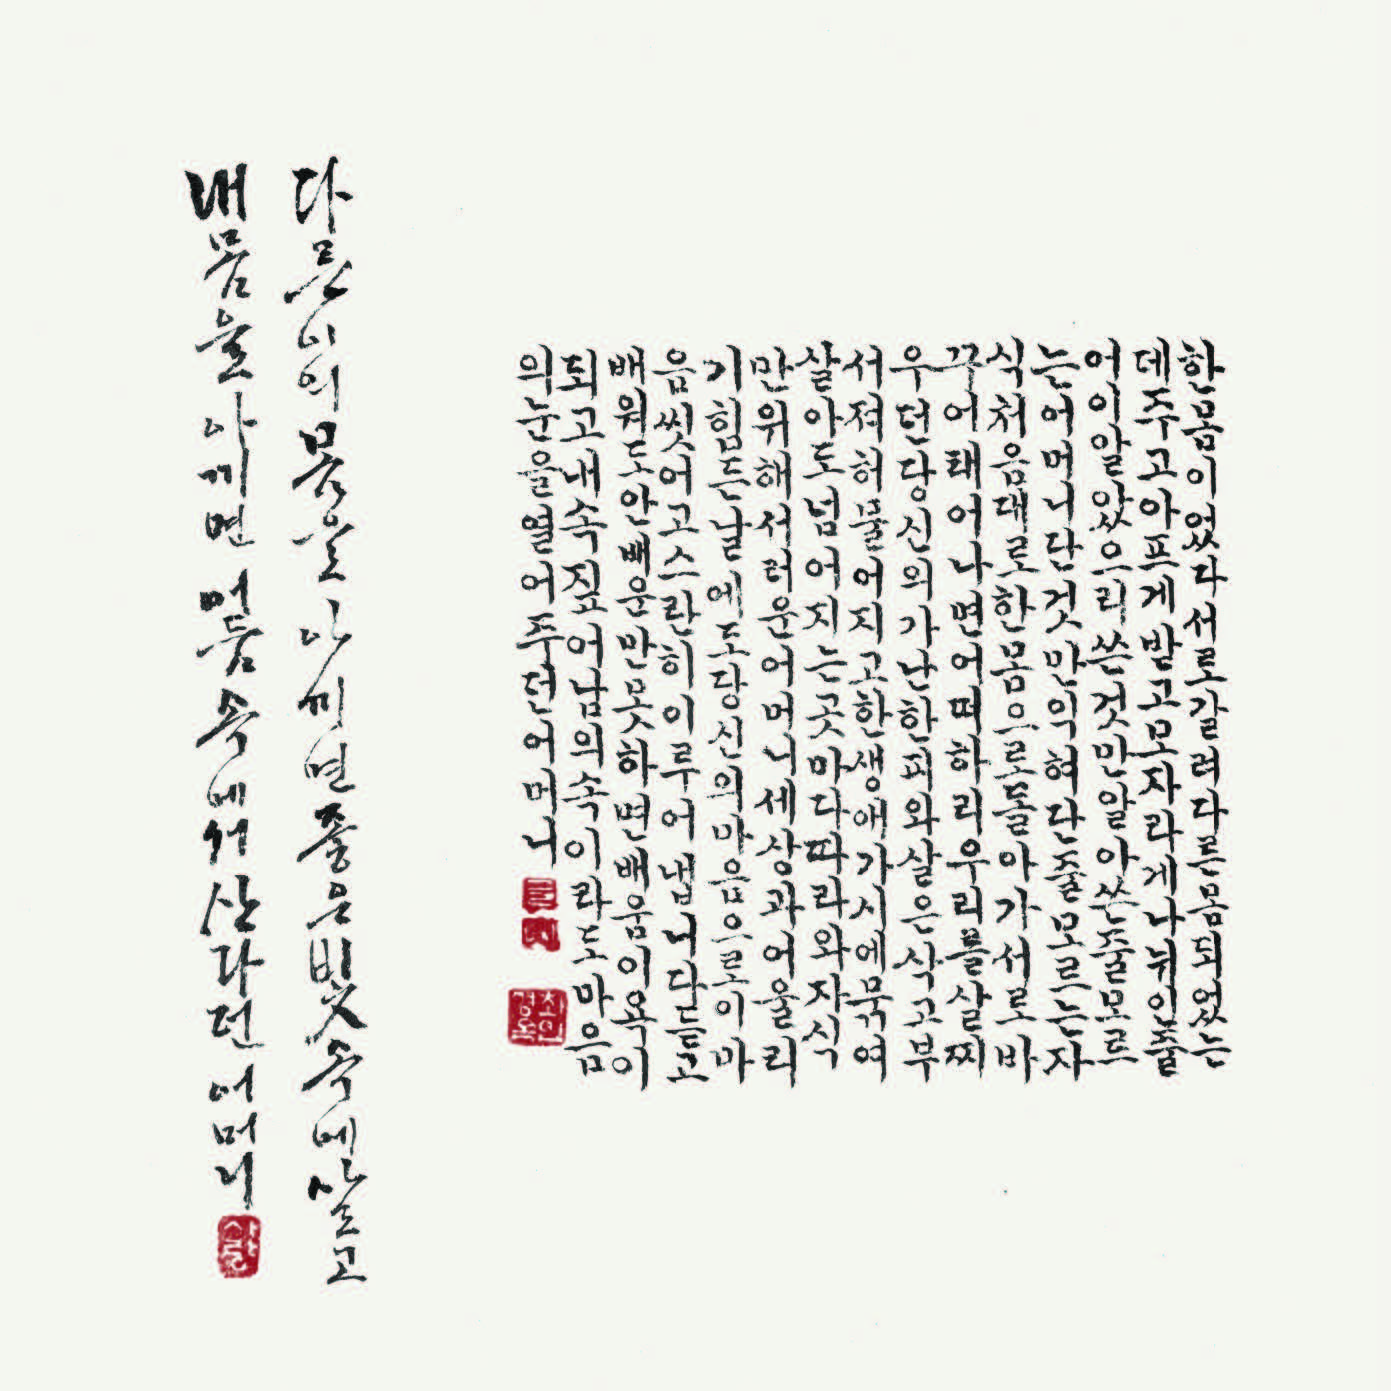 한몸이었다서로갈려다른몸되었는
데주고아프게받고모자라게나뉘인줄
어이알았으리쓴것만알아쓴줄모르
는어머니단것만익혀단줄모르는자
식처음대로한몸으로돌아가서로바
꾸어태어나면어떠하리우리를살찌
우던당신의가난한피와살은삭고부
서져허물어지고한생애가시에묶여
살아도넘어지는곳마다따라와자식
만위해서러운어머니세상과어울리
기힘든날에도당신의마음으로이마
음씻어고스란히이루어냅니다듣고
배워도안배운만못하면배움이욕이
되고내속짚어남의속이라도마음
의눈을열어주던어머니
다른이의몸을아끼면좋은빛속에살고
내몸을아끼면어둠속에서산다던어머니